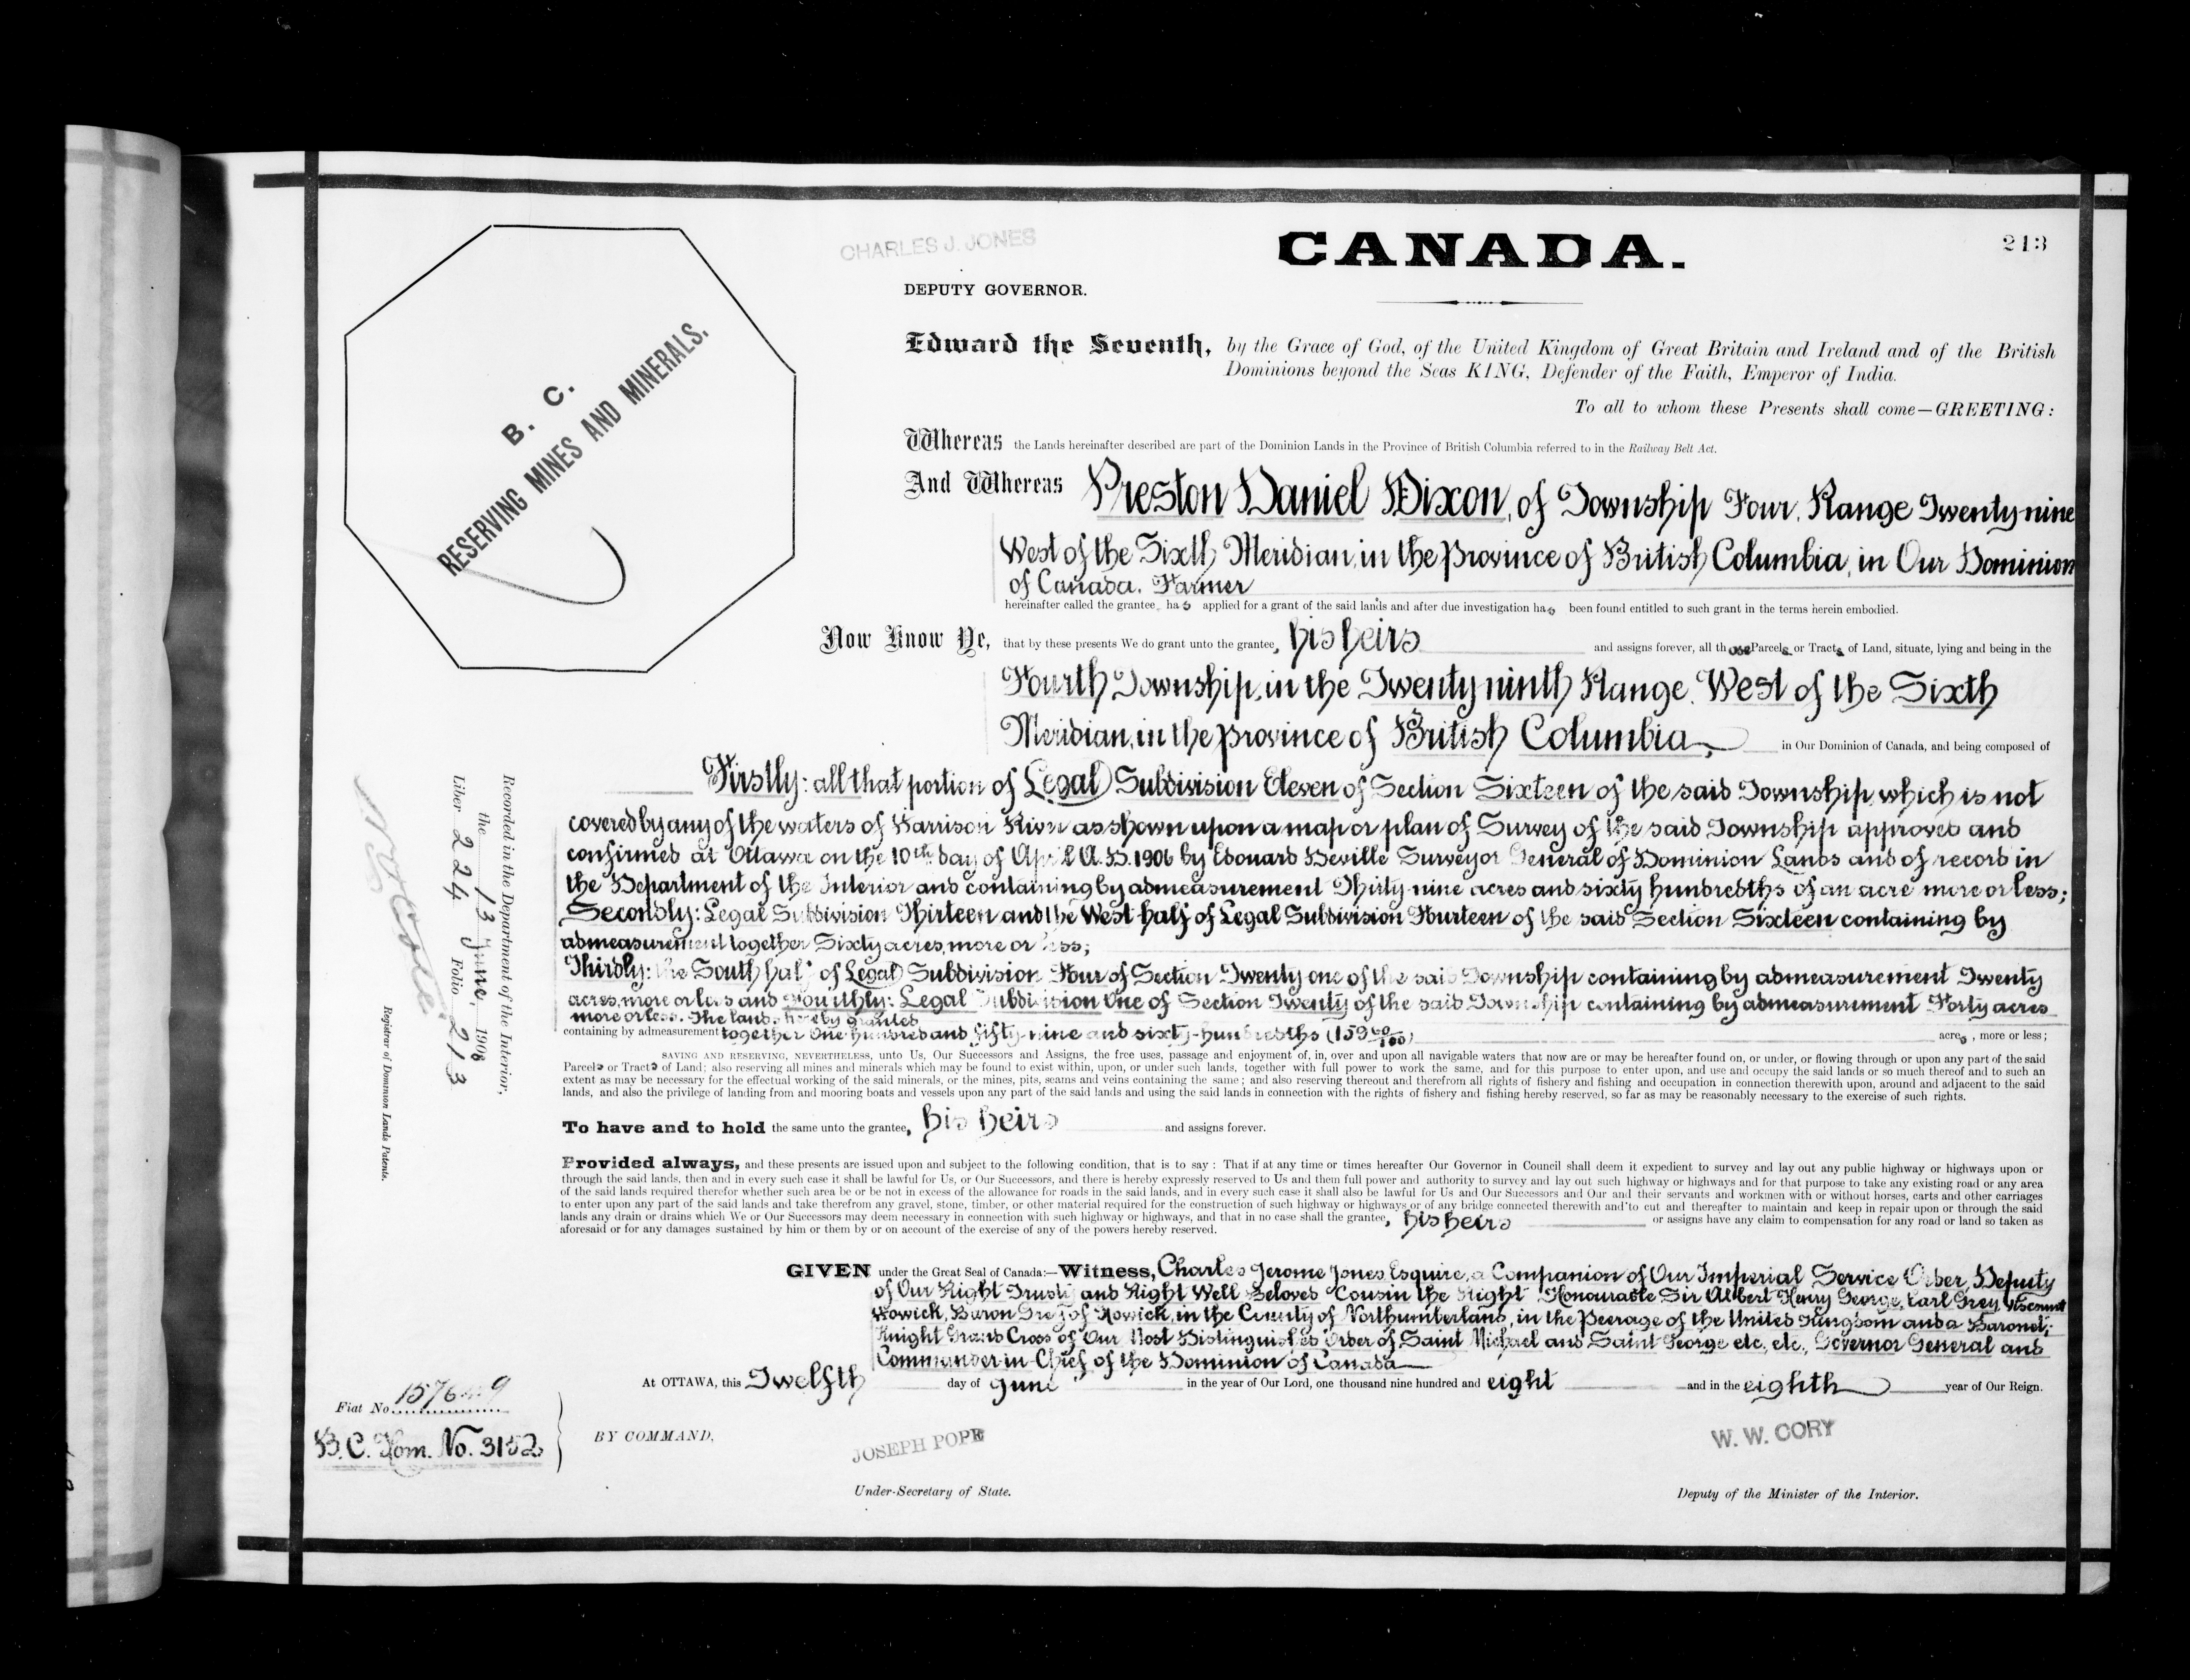 213
CHARLES J. JONES
CANADA.
DEPUTY GOVERNOR.
B. C.
RESERVING MINES AND MINERALS.
Edward the Seventh, by the Grace of God, of the United Kingdom of Great Britain and Ireland and of the British
Dominions beyond the Seas KING, Defender of the Faith, Emperor of India.
To all to whom these Presents shall come—GREETING:
Whereas the Lands hereinafter described are part of the Dominion Lands in the Province of British Columbia referred to in the Railway Belt Act.
And Whereas Preston Daniel Dixon, of Township Four, Range Twenty-nine
West of the Sixth Meridian, in the Province of British Columbia, in Our Dominion
of Canada. Farmer
hereinafter called the grantee, has applied for a grant of the said lands and after due investigation has been found entitled to such grant in the terms herein embodied.
Now Know Ye, that by these presents We do grant unto the grantee, his heirs and assigns forever, all those Parcels or Tracts of Land, situate, lying and being in the
Fourth Township, in the Twenty ninth Range, West of the Sixth
Meridian, in the Province of British Columbia, in Our Dominion of Canada, and being composed of
Firstly: all that portion of Legal Subdivision Eleven of Section Sixteen of the said Township, which is not
covered by any of the waters of Harrison River as shown upon a map or plan of Survey of the said Township approved and
confirmed at Ottawa on the 10th day of April A.D. 1906 by Edouard Deville Surveyor General of Dominion Lands and of record in
the Department of the Interior and containing by admeasurement Thirty-nine acres and sixty hundredths of an acre more or less;
Secondly: Legal Subdivision Thirteen and the West half of Legal Subdivision Fourteen of the said Section Sixteen containing by
admeasurement together Sixty acres, more or less;
Thirdly: the South half of Legal Subdivision Four of Section Twenty one of the said Township containing by admeasurement Twenty
acres, more or less and Fourthly: Legal Subdivision One of Section Twenty of the said Township containing by admeasurement Forty acres
more or less. The lands hereby granted
containing by admeasurement together One hundred and fifty-nine and sixty-hundredths (159 60/100) acres, more or less;
SAVING AND RESERVING, NEVERTHELESS, unto Us, Our Successors and Assigns, the free uses, passage and enjoyment of, in, over and upon all navigable waters that now are or may be hereafter found on, or under, or flowing through or upon any part of the said
Parcels or Tracts of Land; also reserving all mines and minerals which may be found to exist within, upon, or under such lands, together with full power to work the same, and for this purpose to enter upon, and use and occupy the said lands or so much thereof and to such an
extent as may be necessary for the effectual working of the said minerals, or the mines, pits, seams and veins containing the same; and also reserving thereout and therefrom all rights of fishery and fishing and occupation in connection therewith upon, around and adjacent to the said
lands, and also the privilege of landing from and mooring boats and vessels upon any part of the said lands and using the said lands in connection with the rights of fishery and fishing hereby reserved, so far as may be reasonably necessary to the exercise of such rights.
To have and to hold the same unto the grantee, his heirs and assigns forever.
Provided always, and these presents are issued upon and subject to the following condition, that is to say: That if at any time or times hereafter Our Governor in Council shall deem it expedient to survey and lay out any public highway or highways upon or
through the said lands, then and in every such case it shall be lawful for Us, or Our Successors, and there is hereby expressly reserved to Us and them full power and authority to survey and lay out such highway or highways and for that purpose to take any existing road or any area
of the said lands required therefor whether such area be or be not in excess of the allowance for roads in the said lands, and in every such case it shall also be lawful for Us and Our Successors and Our and their servants and workmen with or without horses, carts and other carriages
to enter upon any part of the said lands and take therefrom any gravel, stone, timber, or other material required for the construction of such highway or highways or of any bridge connected therewith and to cut and thereafter to maintain and keep in repair upon or through the said
lands any drain or drains which We or Our Successors may deem necessary in connection with such highway or highways, and that in no case shall the grantee, his heirs or assigns have any claim to compensation for any road or land so taken as
aforesaid or for any damages sustained by him or them by or on account of the exercise of any of the powers hereby reserved.
GIVEN under the Great Seal of Canada:—Witness, Charles Jerome Jones, Esquire, a Companion of Our Imperial Service Order, Deputy
of Our Right Trusty and Right Well Beloved Cousin the Right Honourable Sir Albert Henry George, Earl Grey, Viscount
Howick, Baron Grey of Howick, in the County of Northumberland, in the Peerage of the United Kingdom and a Baronet;
Knight Grand Cross of Our Most Distinguished Order of Saint Michael and Saint George etc. etc., Governor General and
Commander-in-Chief of the Dominion of Canada
At OTTAWA, this Twelfth day of June in the year of Our Lord, one thousand nine hundred and eight and in the eighth year of Our Reign.
BY COMMAND,
JOSEPH POPE
Under-Secretary of State.
W. W. CORY
Deputy of the Minister of the Interior.
Fiat No.
B.C. Hom. No. 3152
Recorded in the Department of the Interior,
the 13 June, 1908
Liber 224 Folio 213
Registrar of Dominion Lands Patents.